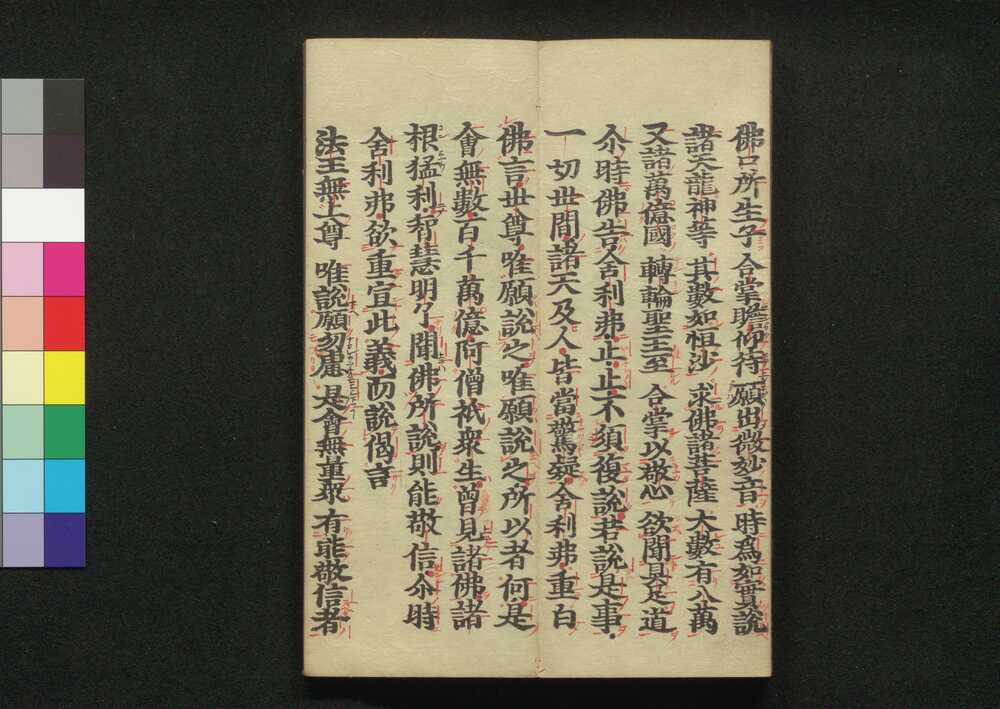 佛口所生子 合掌瞻仰待 願出微妙音 時爲如實說
諸天龍神等 其數如恒沙 求佛諸菩薩 大數有八萬
又諸萬億國 轉輪聖王至 合掌以敬心 欲聞具足道
尒時佛告舍利弗止止不須復說若說是事
一切世間諸天及人皆當驚疑舍利弗重白
佛言世尊唯願說之唯願說之所以者何是
會無數百千萬億阿僧祇衆生曾見諸佛諸
根猛利智慧明了聞佛所說則能敬信尒時
舍利弗欲重宣此義而說偈言
法王無上尊 唯說願勿慮 是會無量衆 有能敬信者